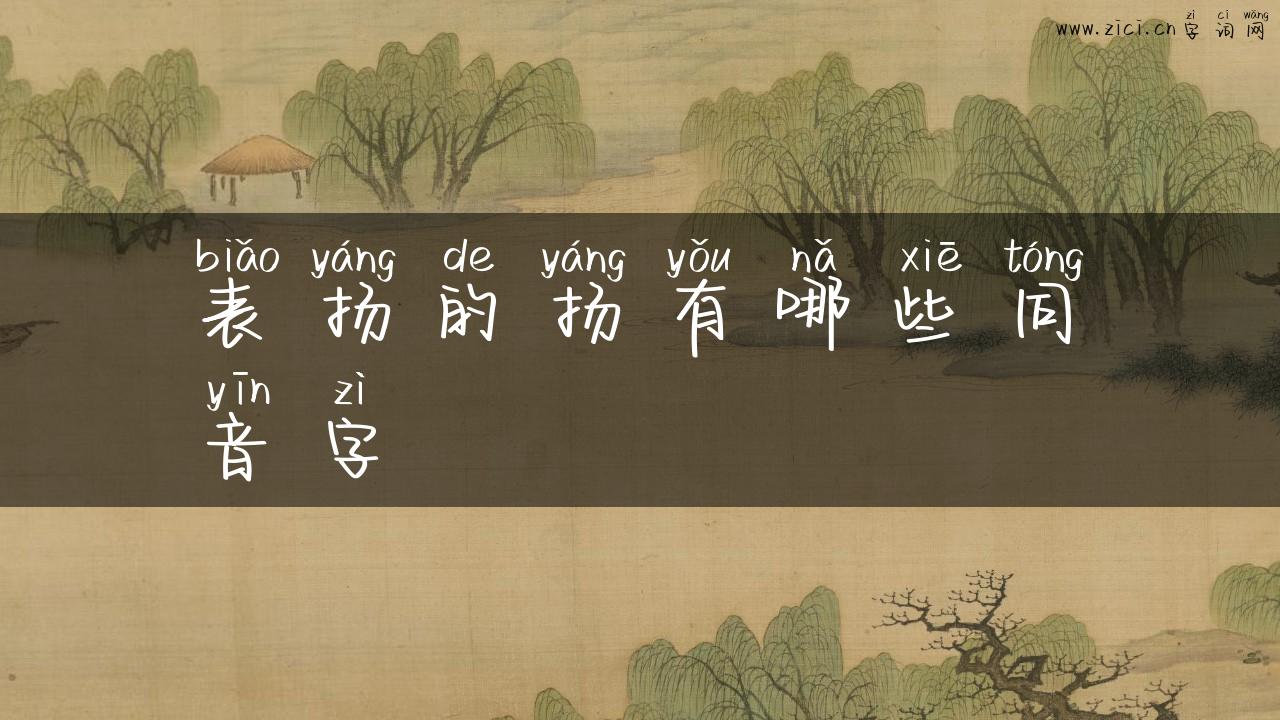 zì cí wǎng
www.zici.cn 字 词 网
biǎo yáng de yáng yǒu nǎ xiē tóng
表 扬 的 扬 有 哪 些 同
yīn zì
音 字